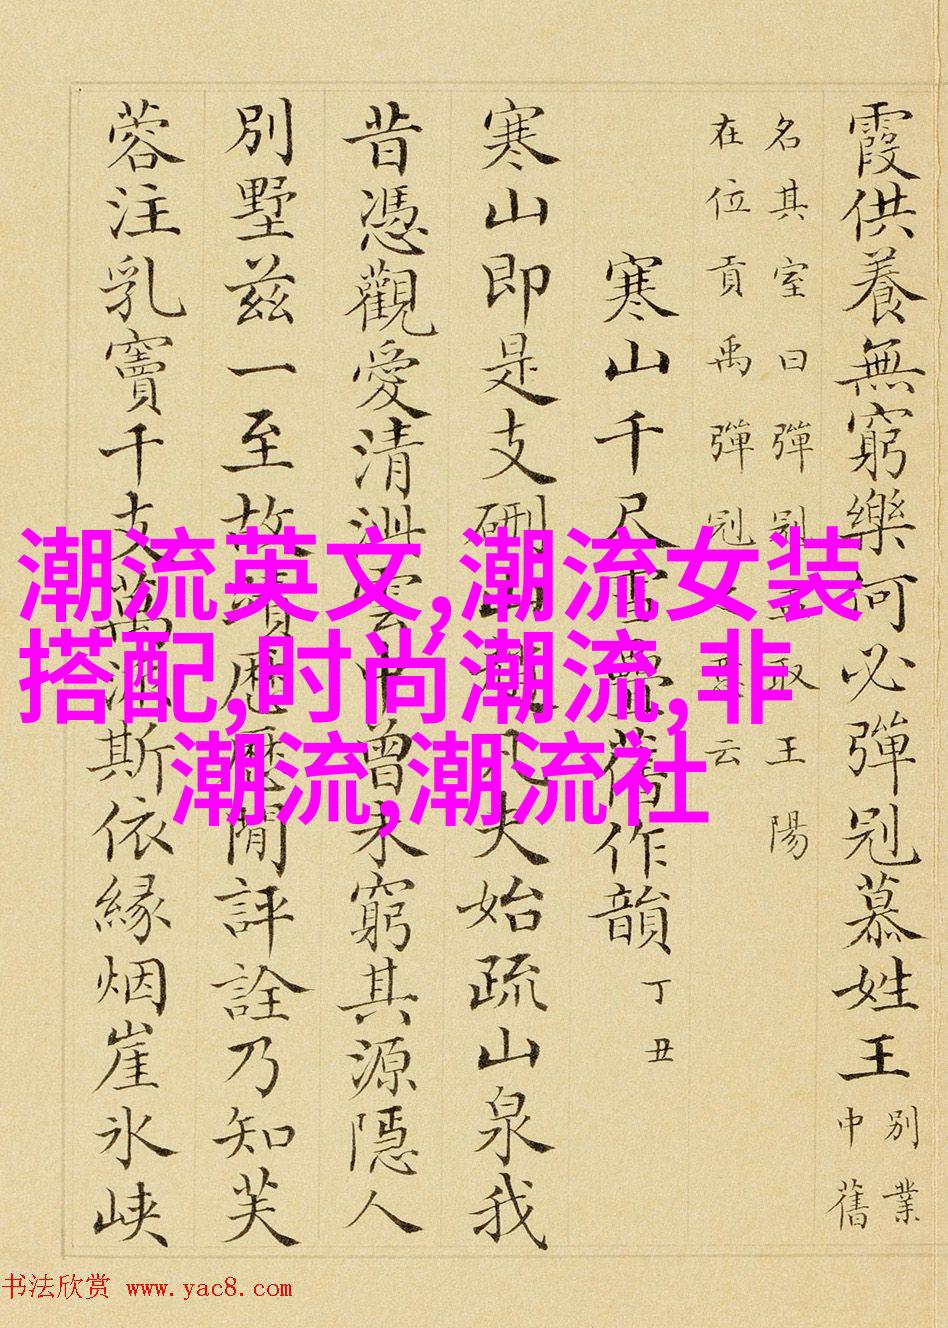 霞供養無窮樂何必彈冠慕姓王
別業
中舊
名其室曰彈冠取王陽
在位貢禹彈冠云
寒山千尺雪疊舊作韻
丁丑
寒山即是支硎山凡夫始疏山泉我
昔憑觀愛清雲中曾未窮其源隱人
別墅茲一至故蹟歷歷閒評詮乃知芙
蓉注乳竇千支萬派斯依緣烟崖氷峽
潮流英文,潮流女装
搭配,时尚潮流,非
潮流,潮流社
书法欣赏 www.yac8.com